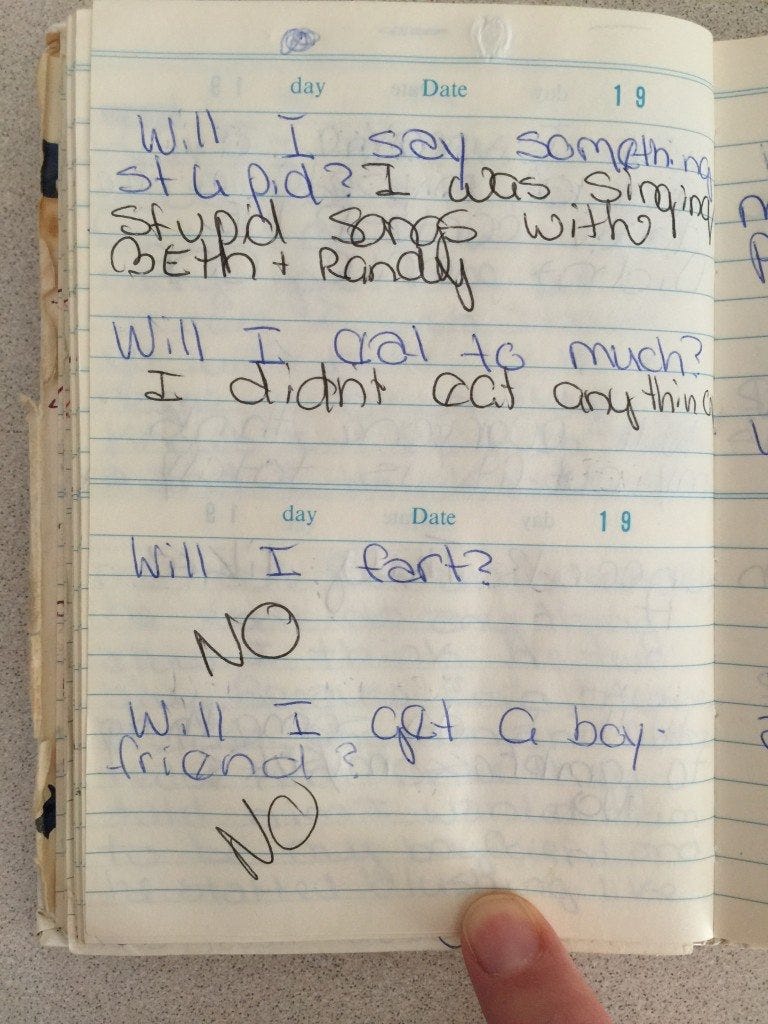 day Date 19
Will I say something
stupid? I was singing
stupid songs with
BEth + Randy
Will I eat to much?
I didnt eat anything
day Date 19
Will I fart?
NO
Will I get a boy-
friend?
NO